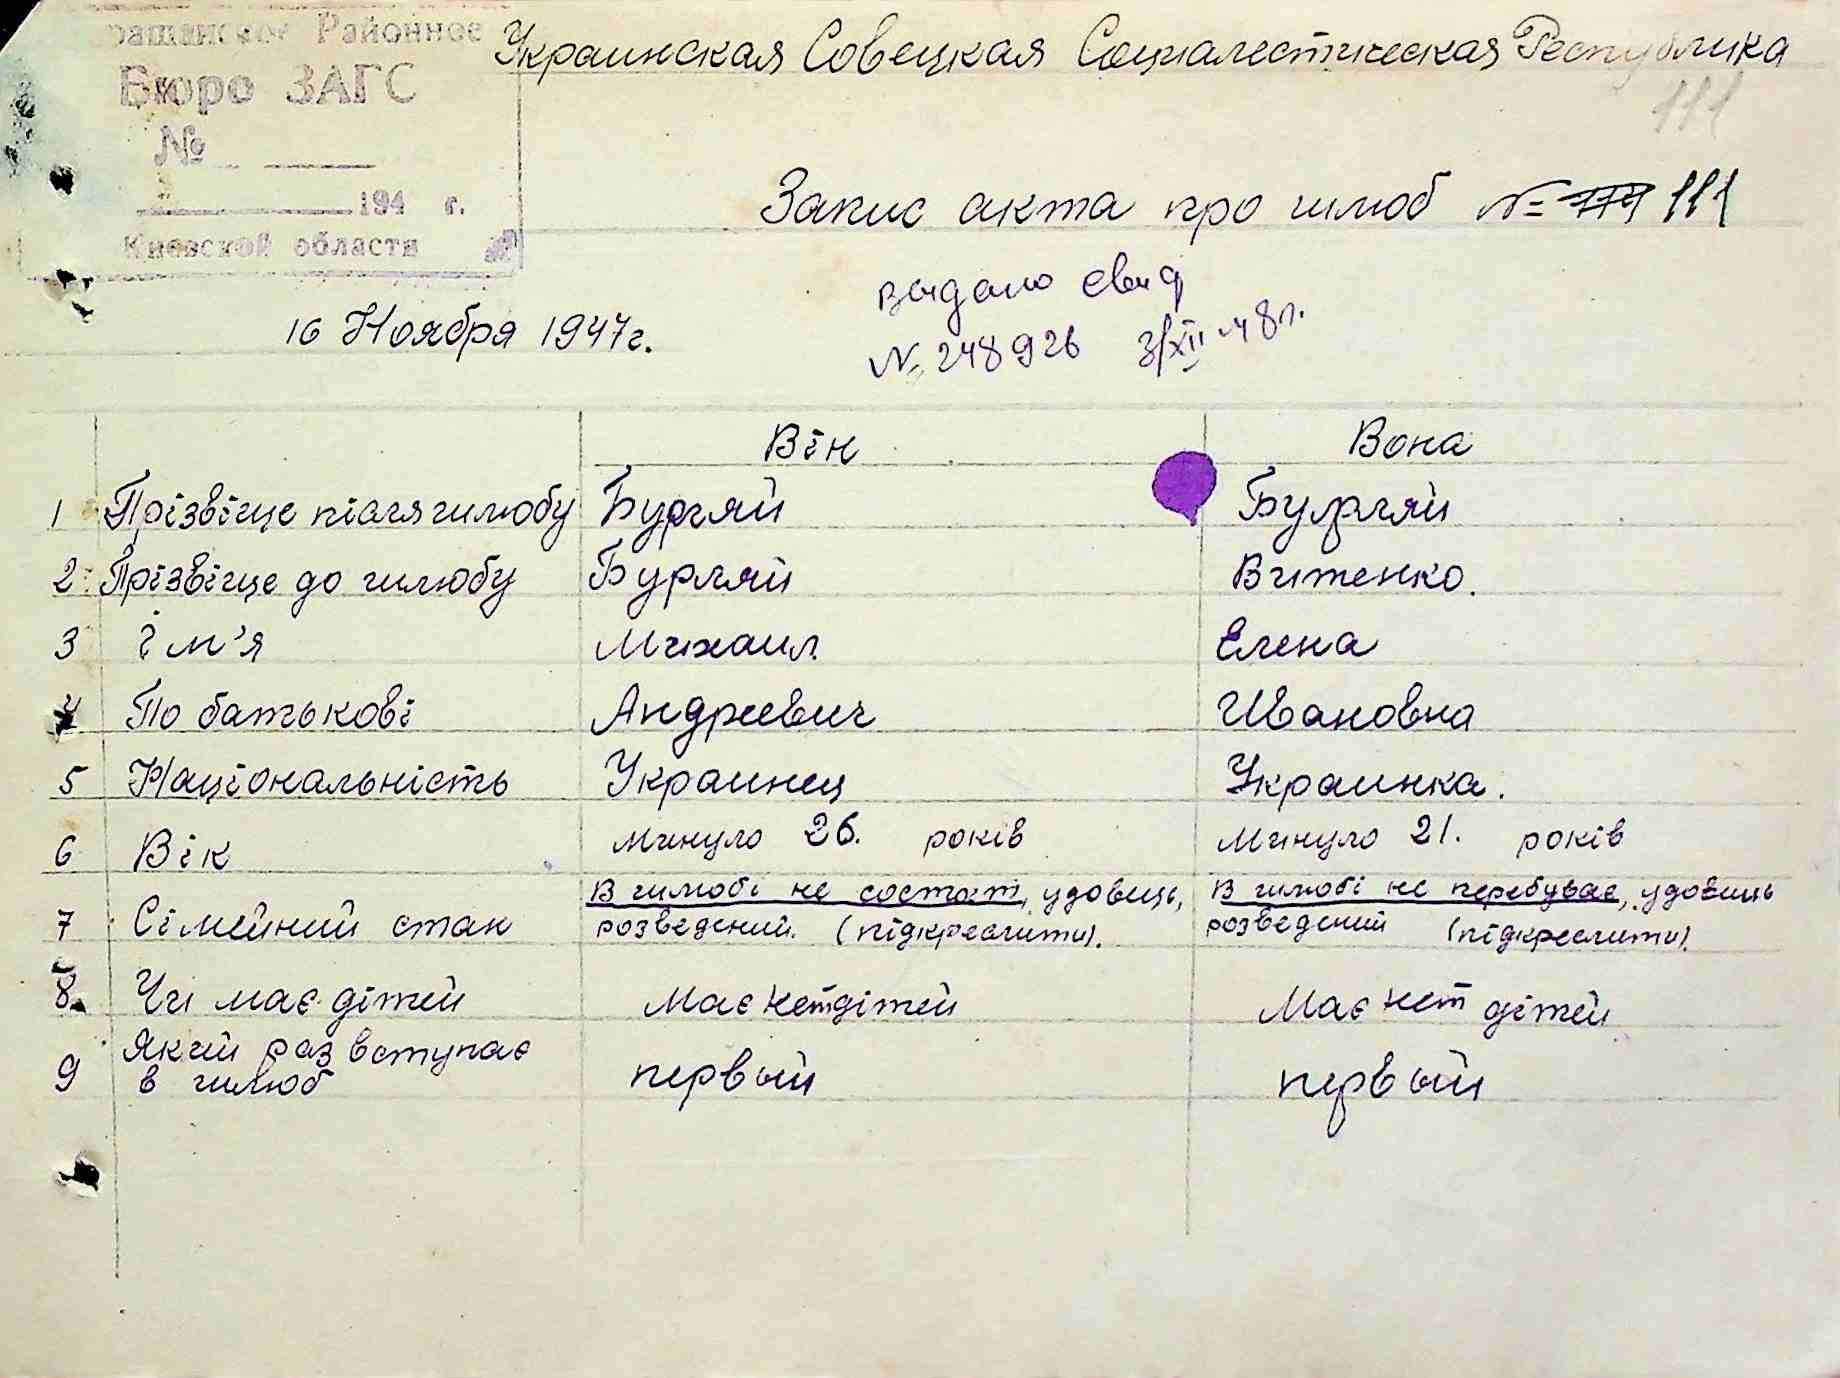 Районное
Бюро ЗАГС
№
194 г.
Киевской области
Украинская Совецкая Социалестическая Республика
111
Запис акта про шлюб № 111
выдано свид
№ 248926 3/XII-48г.
16 Ноября 1947г.
Він Вона
1 Прізвіще після шлюбу Бургяй Бургяй
2 Прізвіще до шлюбу Бургяй Витенко.
3 Ім'я Михаил Елена
4 По батькові Андреевич Ивановна
5 Національність Украинец Украинка.
6 Вік минуло 26. років минуло 21. років
7 Сімейний стан В шлюбі не состоит, удовиць, розведений. (підкреслити). В шлюбі не перебуває, удовиць розведений (підкреслити).
8. Чи має дітей Має нет дітей Має нет дітей
9 Який раз вступає в шлюб первый первый